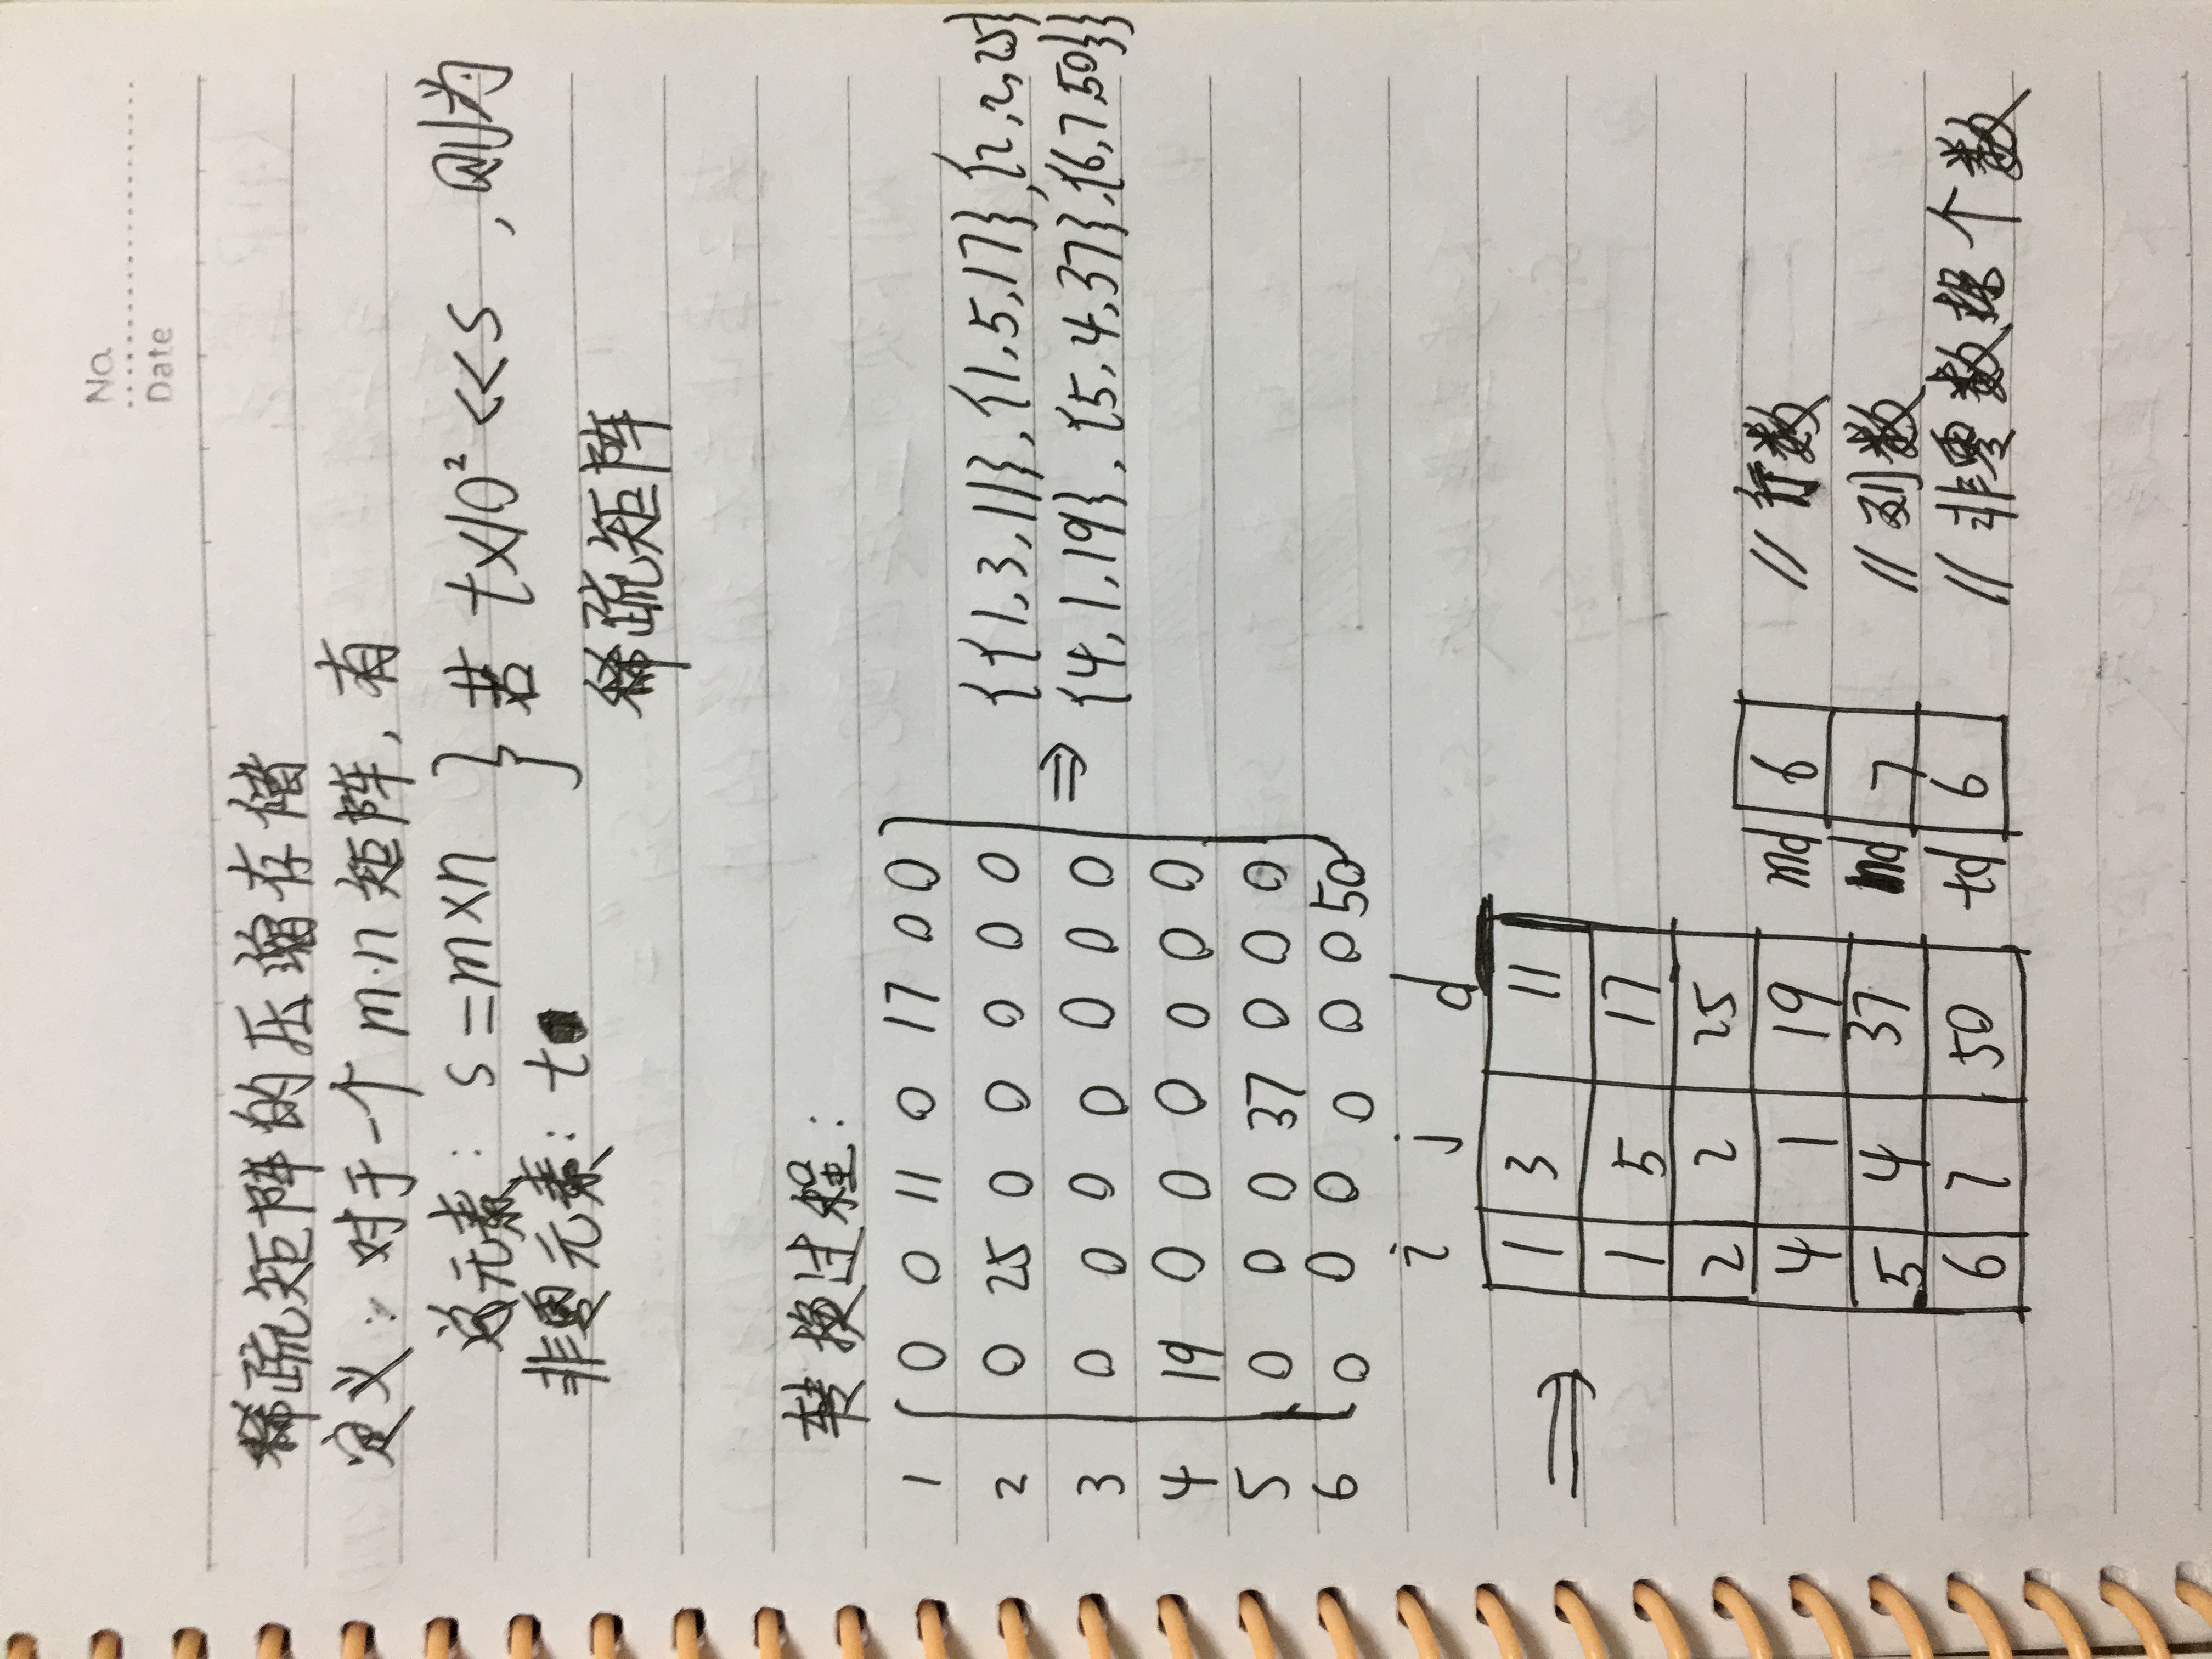 No.
Date
稀疏矩阵的压缩存储
定义：对于一个 m·n 矩阵，有
总元素：s=m×n } 若 t×10² <<s ，则为
非零元素：t
稀疏矩阵
转换过程：
1 0 0 11 0 17 0 0
2 0 25 0 0 0 0 0
3 0 0 0 0 0 0 0
4 19 0 0 0 0 0 0
5 0 0 0 37 0 0 0
6 0 0 0 0 0 0 50
⇒ {{1,3,11},{1,5,17},{2,2,25}
{4,1,19},{5,4,37},{6,7,50}}
i j d
⇒ 1 3 11
1 5 17
2 2 25
4 1 19
5 4 37
6 7 50
md 6 //行数
nd 7 //列数
td 6 //非零数据个数